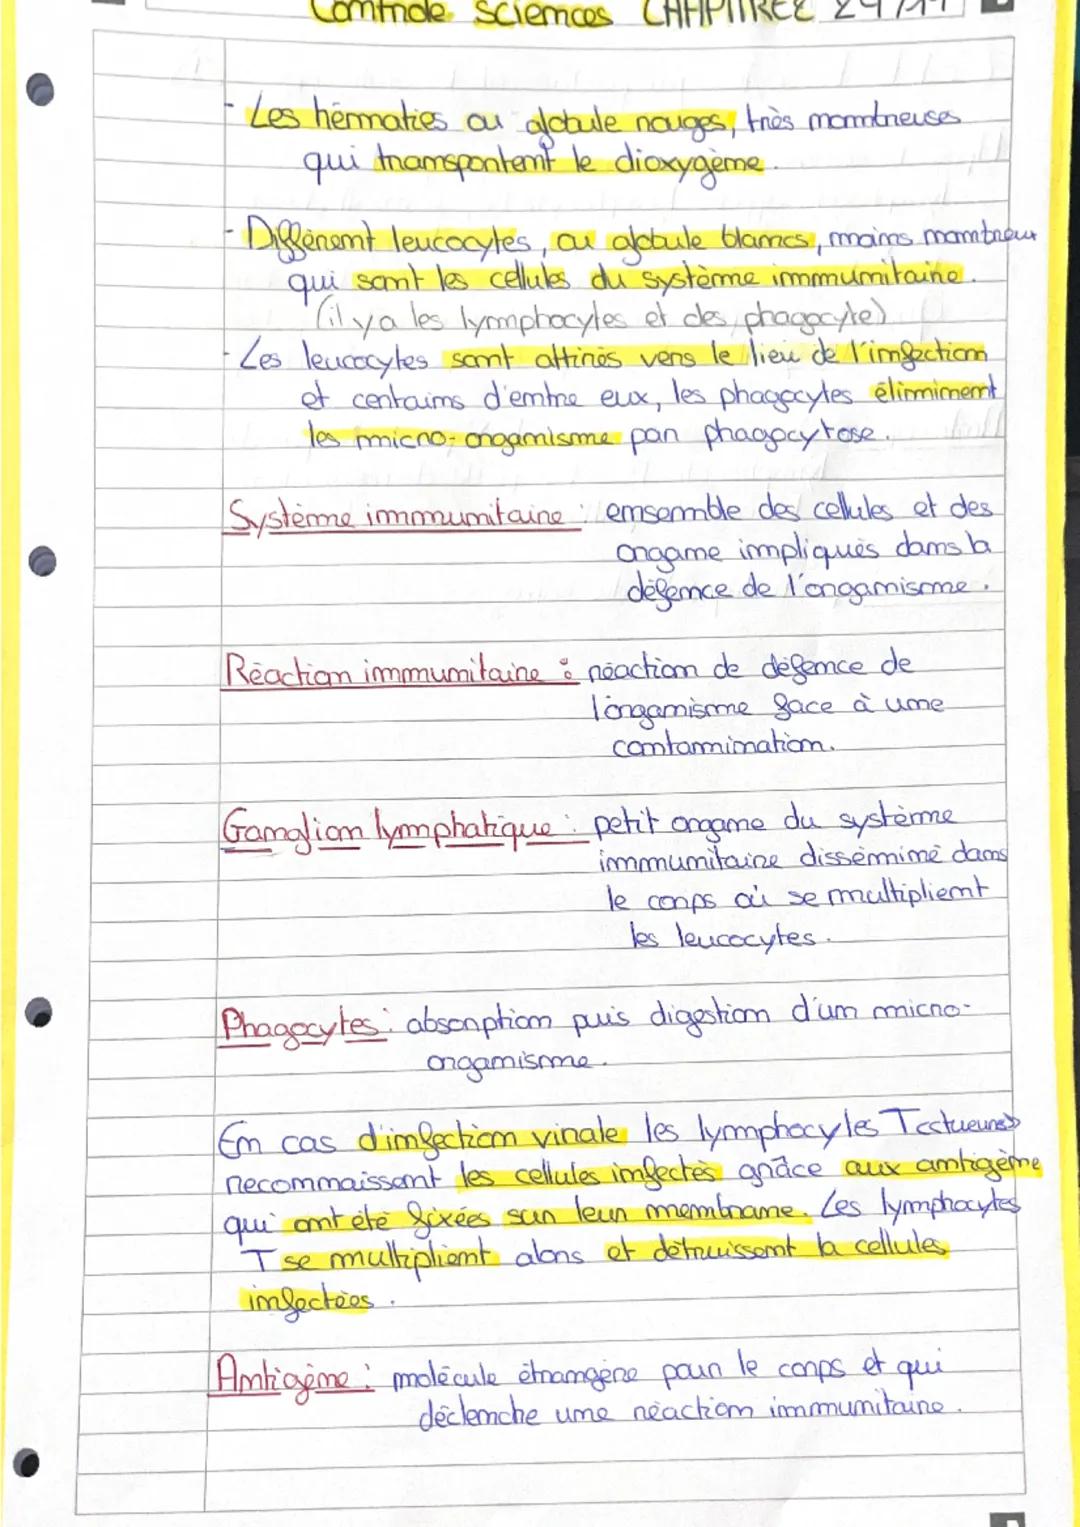 Controle Sciences CHAPITRE2 29/11
- Les hérmaties ou globule rouges, très monnbreuses
qui transportent le dioxygène.
- Différent leucocytes, ou globule blancs, moins nombreux
qui sont les cellules du système immunitaire.
(il y a les lymphocytes et des phagocyte)
- Les leucocytes sont attirés vers le lieu de l'infection
et certains d'entre eux, les phagocytes éliminent
les micro-organisme par phagocytose.
Système immunitaire : ensemble des cellules et des
organe impliqués dans la
défence de l'organisme.
Réaction immunitaire : réaction de défence de
l'organisme face à une
contamination.
Ganglion lymphatique : petit organe du système
immunitaire disséminé dans
le corps où se multiplient
les leucocytes.
Phagocytes : absorption puis digestion d'un micro-
organisme.
En cas d'infection virale les lymphocytes T
reconnaissent les cellules infectés grâce aux antigène
qui ont été fixées sur leur membrane. Les lymphocytes
T se multiplient alors et détruissent la cellules
infectées.
Antigène : molécule étrangère pour le corps et qui
déclenche une réaction immunitaire.